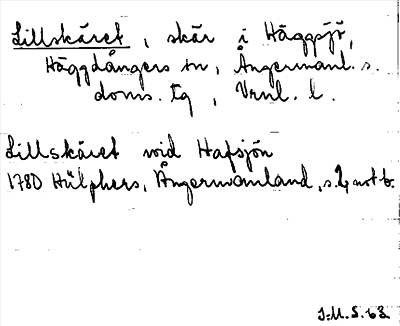 Lillskäret, skär i Häggsjö,
Häggdångers sn, Ångermanl. s.
doms. tg, Vrnl. l.
Lillskäret wid Hafsjön
1780 Hülphers, Ångermanland, s. 2, not b.
I.M.S. 63